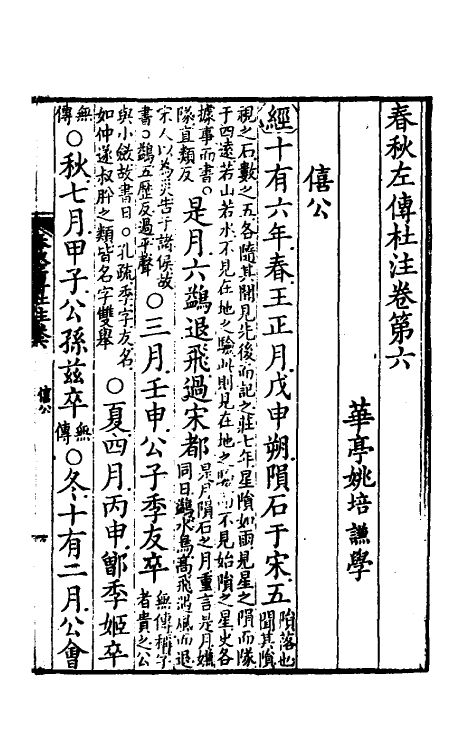 春秋左傳杜注卷第六
華亭姚培謙學
僖公
經十有六年春王正月戊申朔隕石于宋五隕落也聞其隕
視之石數之五各隨其聞見先後而記之莊七年星隕如雨見星之隕而隊
于四遠若山若水不見在地之驗此則見在地之驗而不見始隕之星史各
據事而書〇隊直類反是月六鷁退飛過宋都是月隕石之月重言是月嫌同日鷁水鳥高飛遇風而退
宋人以為災告于諸侯故書〇鷁五歷反過平聲〇三月壬申公子季友卒無傳稱字者貴之公
與小斂故書日〇孔疏季字友名如仲遂叔肸之類皆名字雙舉〇夏四月丙申鄫季姬卒
無傳〇秋七月甲子公孫茲卒無傳〇冬十有二月公會
僖公